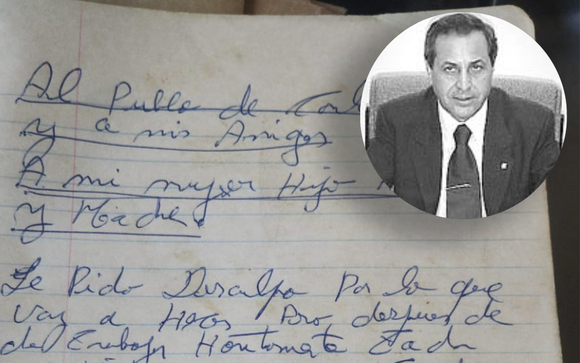 Al Publo de
y a mis Amigos
A mi mujer Hijo
y Madre.
Le Pido Disculpa Por lo que
Voy a Hacer Pero despues de
de